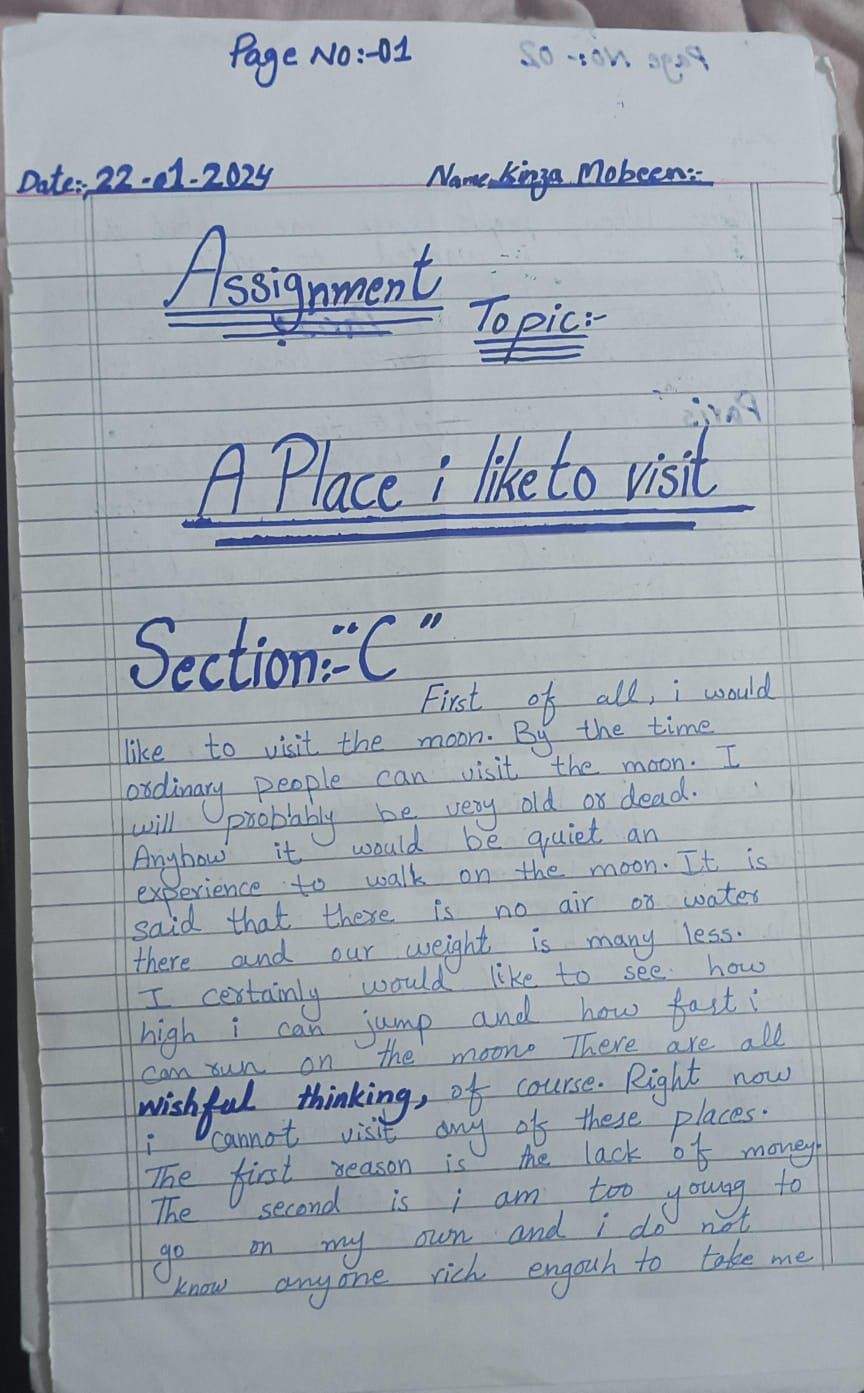 Page No:-01
Date:- 22-01-2024
Name Kinza Mobeen:-
Assignment
Topic:-
A Place i like to visit
Section:-"C"
First of all, i would
like to visit the moon. By the time
ordinary people can visit the moon. I
will probbably be very old or dead.
Anyhow it would be quiet an
experience to walk on the moon. It is
said that there is no air or water
there and our weight is many less.
I certainly would like to see how
high i can jump and how fast i
can run on the moon. There are all
wishful thinking, of course. Right now
i cannot visit any of these places.
The first reason is the lack of money.
The second is i am too young to
go on my own and i do not
know anyone rich engouh to take me